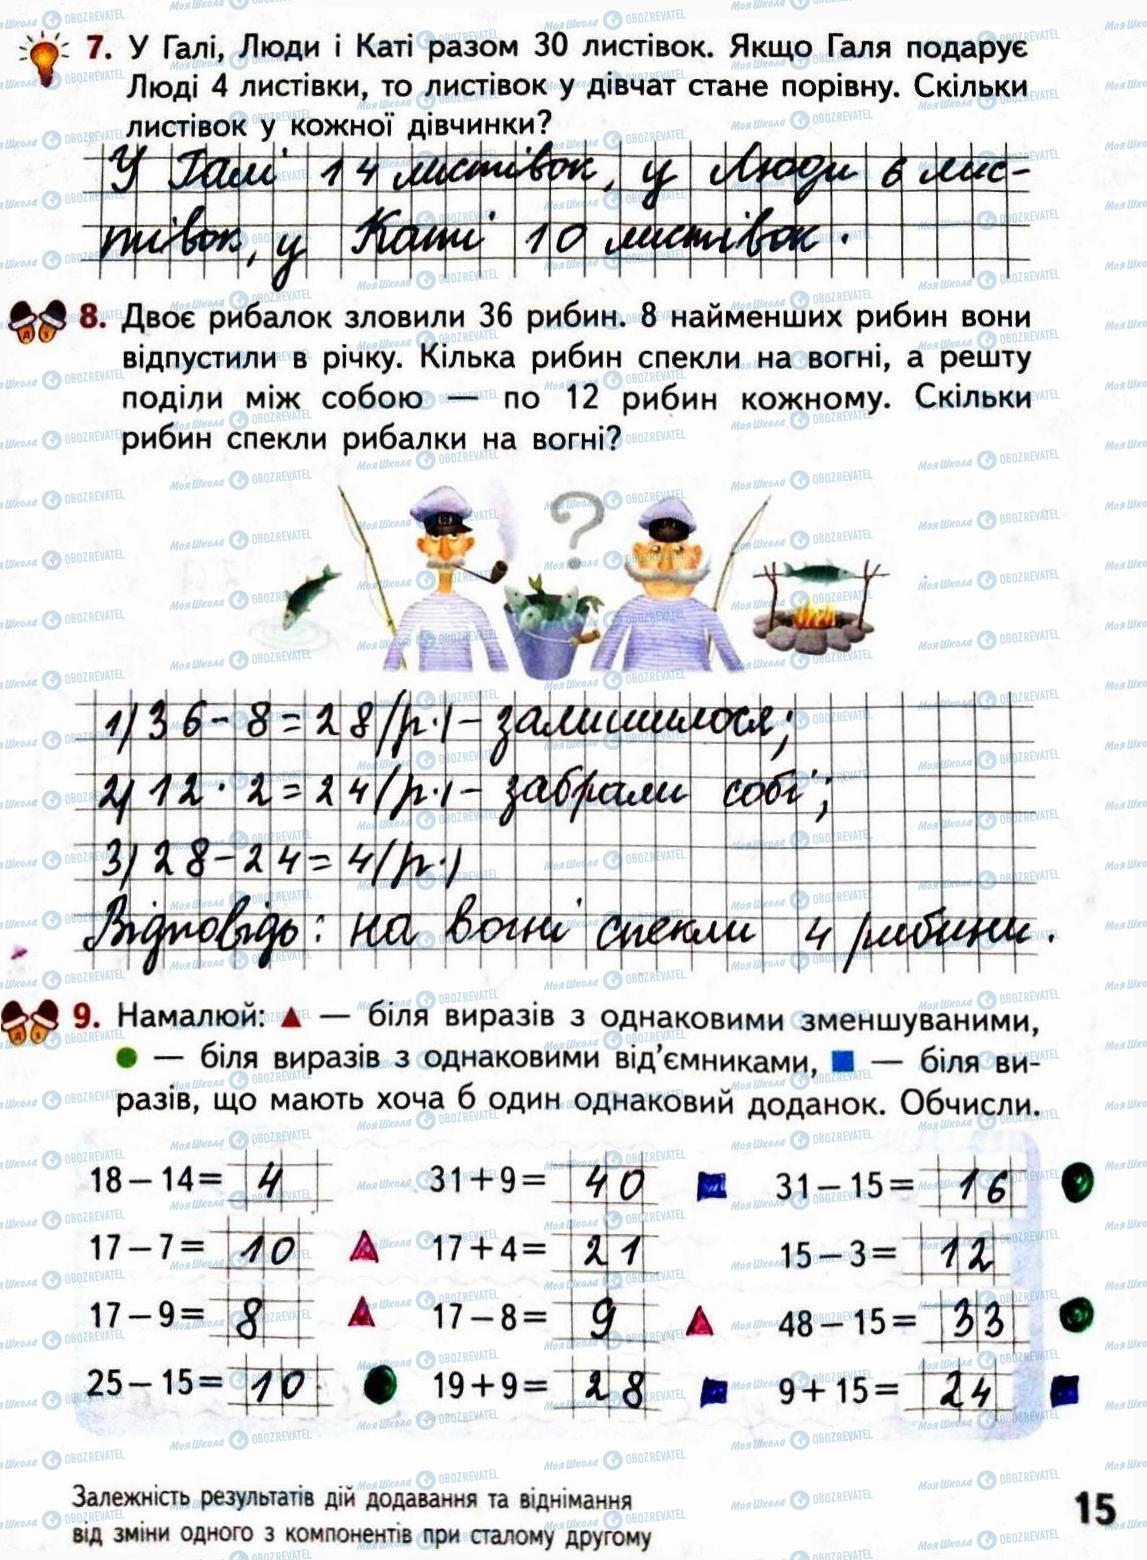 7. У Галі, Люди і Каті разом 30 листівок. Якщо Галя подарує
Люді 4 листівки, то листівок у дівчат стане порівну. Скільки
листівок у кожної дівчинки?
У Галі 14 листівок, у Люди 6 лис-
тівок, у Каті 10 листівок.
8. Двоє рибалок зловили 36 рибин. 8 найменших рибин вони
відпустили в річку. Кілька рибин спекли на вогні, а решту
поділи між собою — по 12 рибин кожному. Скільки
рибин спекли рибалки на вогні?
1) 36-8=28(р.)-залишилося;
2) 12·2=24(р.)-забрали собі;
3) 28-24=4(р.)
Відповідь: на вогні спекли 4 рибини.
9. Намалюй: ▲ — біля виразів з однаковими зменшуваними,
● — біля виразів з однаковими від’ємниками, ■ — біля ви-
разів, що мають хоча б один однаковий доданок. Обчисли.
18−14= 4 31+9= 40 ■ 31−15= 16 ●
17−7= 10 ▲ 17+4= 21 15−3= 12
17−9= 8 ▲ 17−8= 9 ▲ 48−15= 33 ●
25−15= 10 ● 19+9= 28 ■ 9+15= 24 ■
Залежність результатів дій додавання та віднімання
від зміни одного з компонентів при сталому другому
15
МояШкола OBOZREVATEL